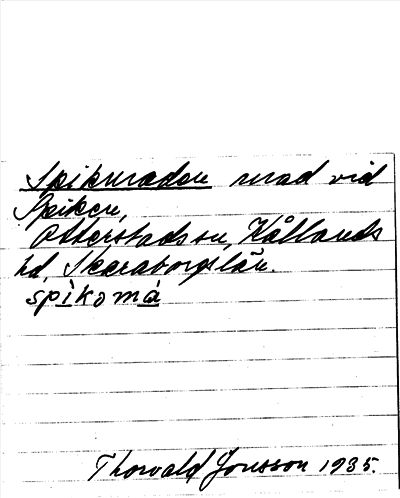 Spikmaden mad vid
Spiken,
Otterstads sn, Kållands
hd, Skaraborgs län.
spìkomá
Thorvald Jonsson 1935.